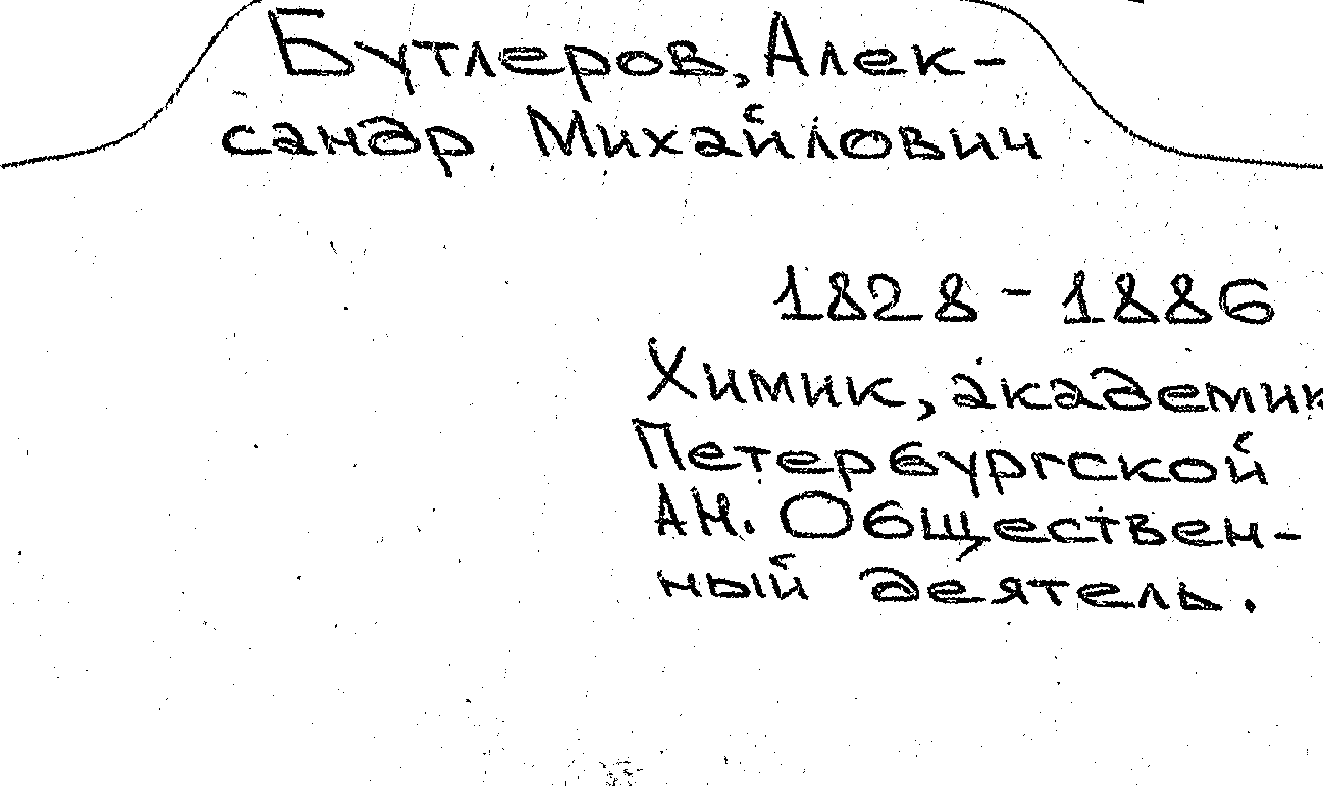 Бутлеров, Алек-
сандр Михайлович
1828 - 1886
Химик, академик
Петербургской
АН. Обществен-
ный деятель.